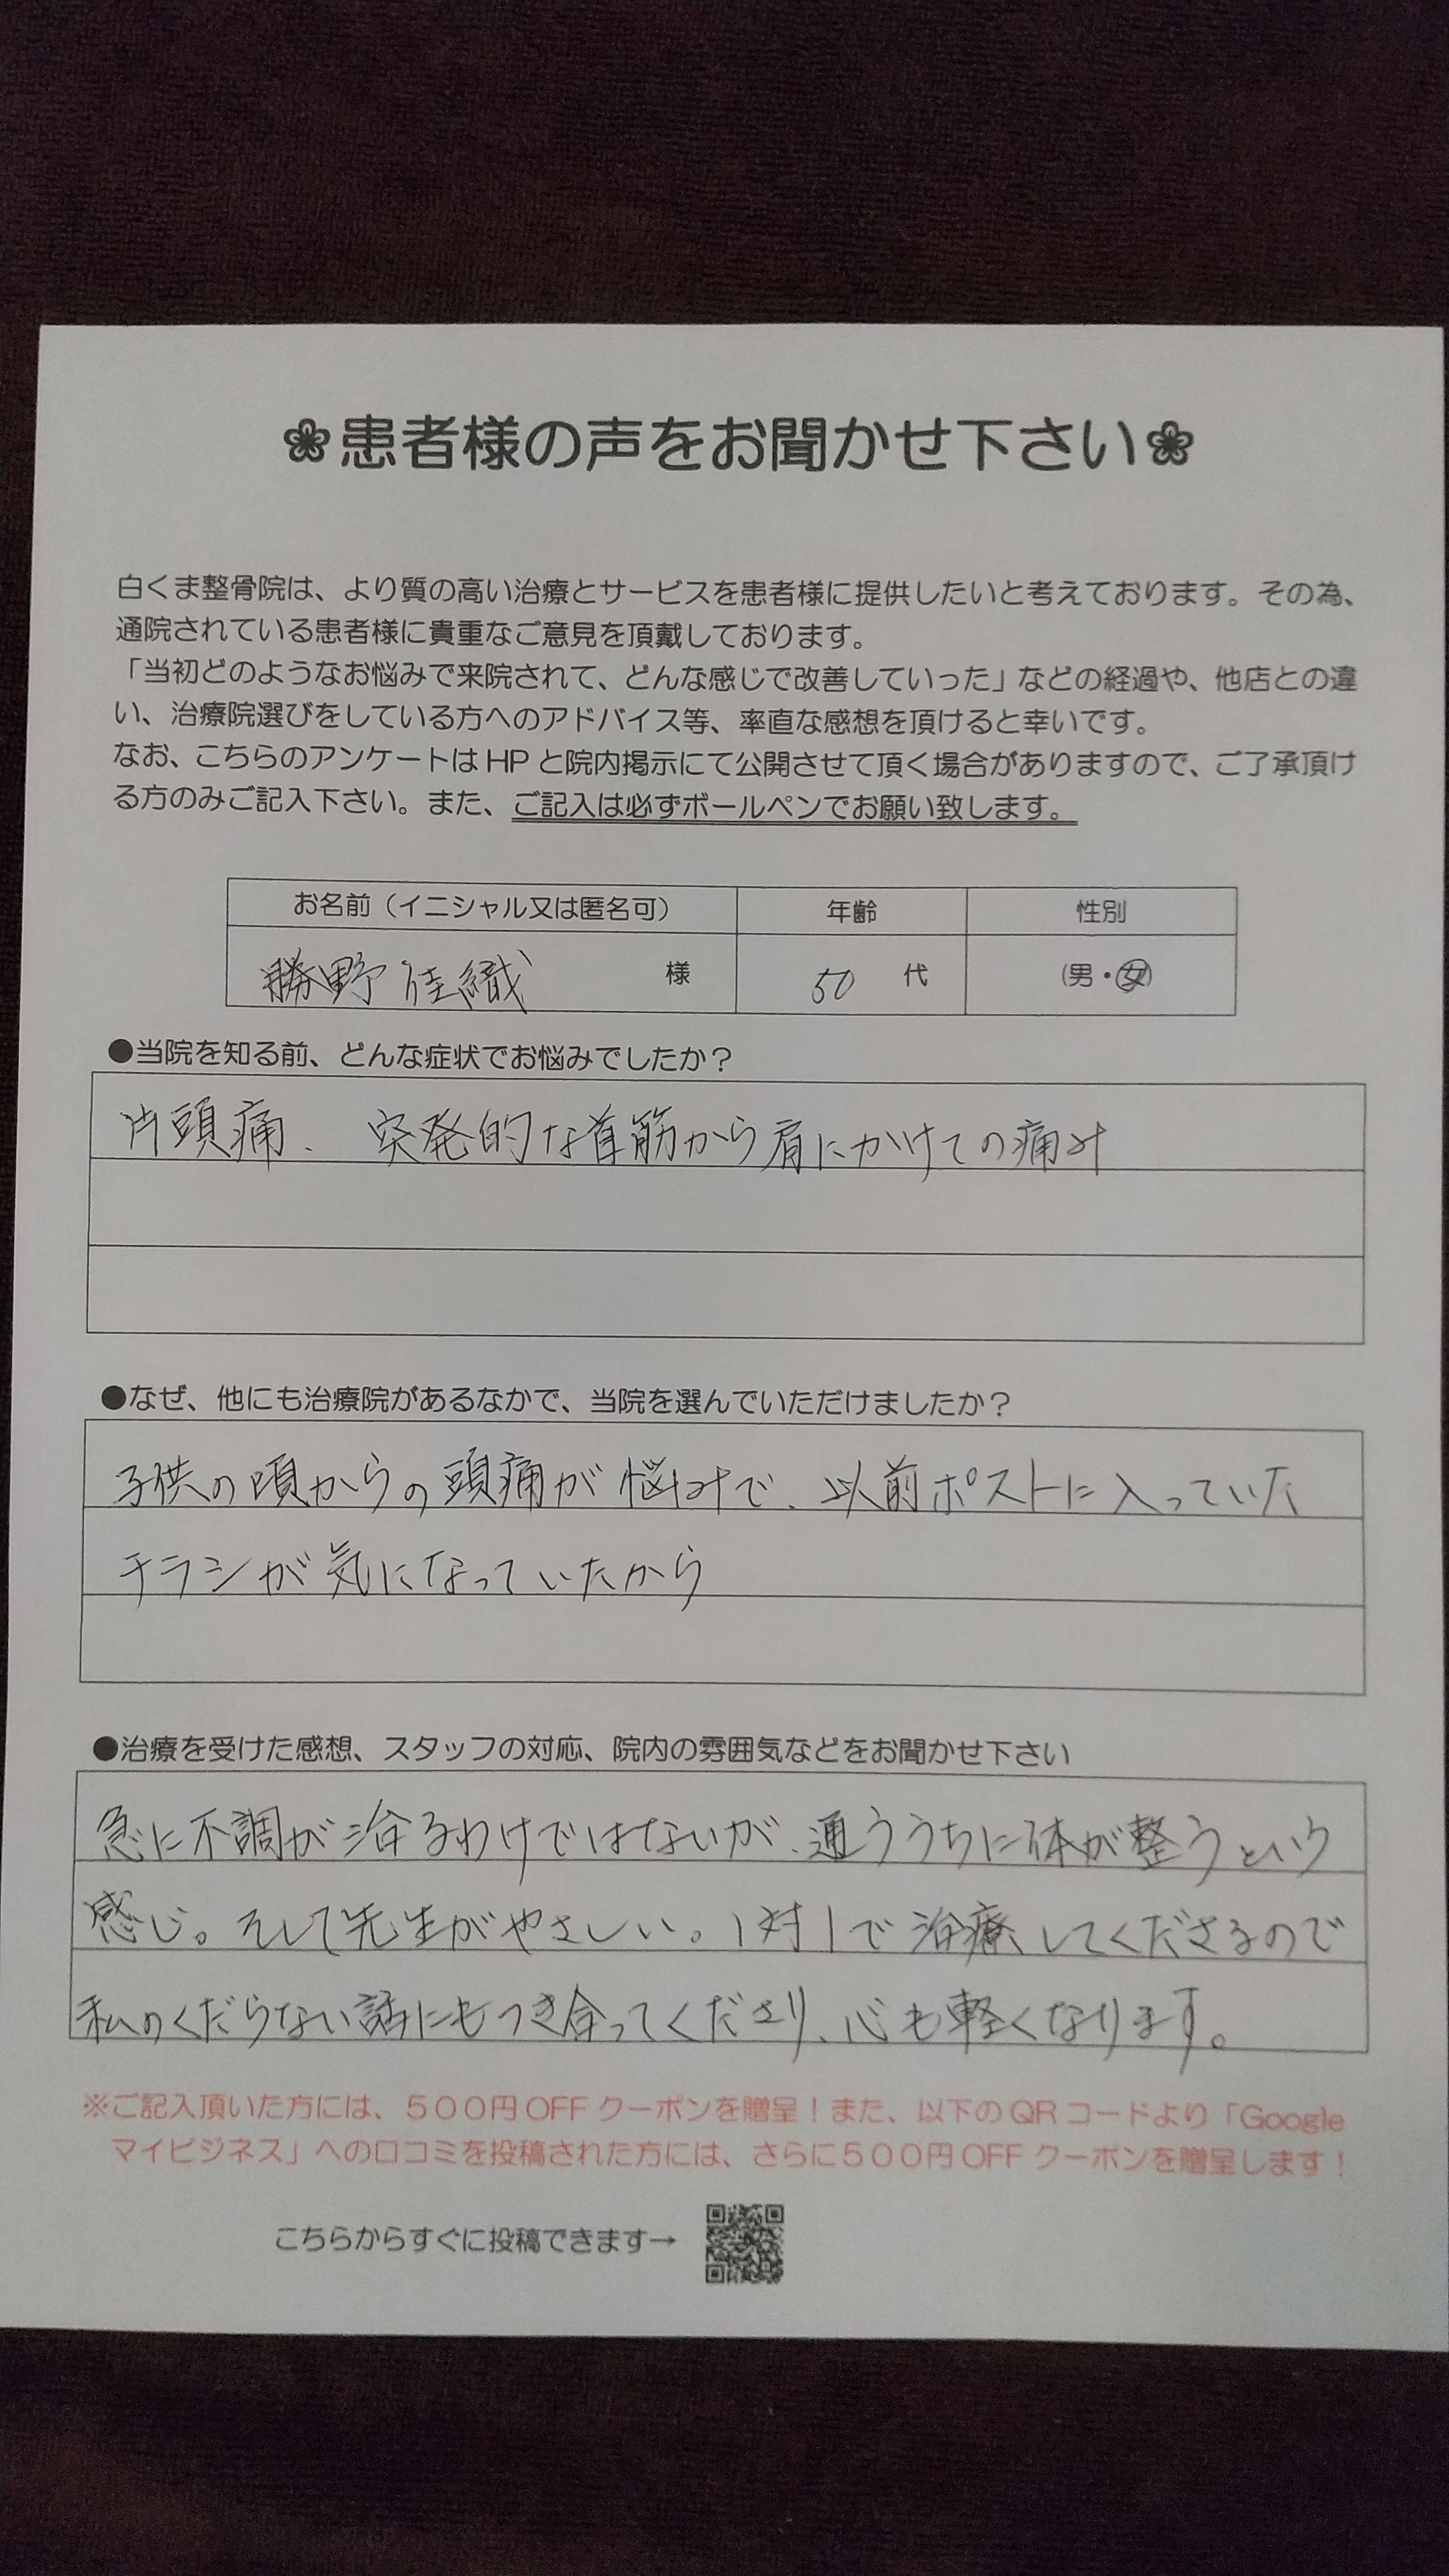 ❀患者様の声をお聞かせ下さい❀
白くま整骨院は、より質の高い治療とサービスを患者様に提供したいと考えております。その為、
通院されている患者様に貴重なご意見を頂戴しております。
「当初どのようなお悩みで来院されて、どんな感じで改善していった」などの経過や、他店との違
い、治療院選びをしている方へのアドバイス等、率直な感想を頂けると幸いです。
なお、こちらのアンケートは HP と院内掲示にて公開させて頂く場合がありますので、ご了承頂け
る方のみご記入下さい。また、ご記入は必ずボールペンでお願い致します。
お名前（イニシャル又は匿名可） 年齢 性別
勝野佳織 様 50 代 （男・女）
●当院を知る前、どんな症状でお悩みでしたか？
片頭痛、突発的な首筋から肩にかけての痛み
●なぜ、他にも治療院があるなかで、当院を選んでいただけましたか？
子供の頃からの頭痛が悩みで、以前ポストに入っていた
チラシが気になっていたから
●治療を受けた感想、スタッフの対応、院内の雰囲気などをお聞かせ下さい
急に不調が治るわけではないが、通ううちに体が整うという
感じ。そして先生がやさしい。1対1で治療してくださるので
私のくだらない話にもつき合ってくださり、心も軽くなります。
※ご記入頂いた方には、５００円 OFF クーポンを贈呈！また、以下の QR コードより「Google
マイビジネス」への口コミを投稿された方には、さらに５００円 OFF クーポンを贈呈します！
こちらからすぐに投稿できます→